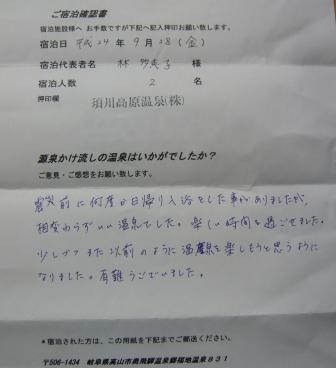 ご宿泊確認書
宿泊施設様へ お手数ですが下記へ記入押印お願い致します。
宿泊日 平成24年9月28(金)
宿泊代表者名 林 多恵子 様
宿泊人数 2 名
押印欄 須川高原温泉(株)
源泉かけ流しの温泉はいかがでしたか？
ご意見・ご感想をお願い致します。
震災前に何度か日帰り入浴をした事がありましたが、
相変わらずいい温泉でした。楽しい時間を過ごせました。
少しづつまた以前のように温泉を楽しもうと思うように
なりました。有難うございました。
＊宿泊された方は、この用紙を下記までご郵送ください。
〒506-1434 岐阜県高山市奥飛騨温泉郷福地温泉831